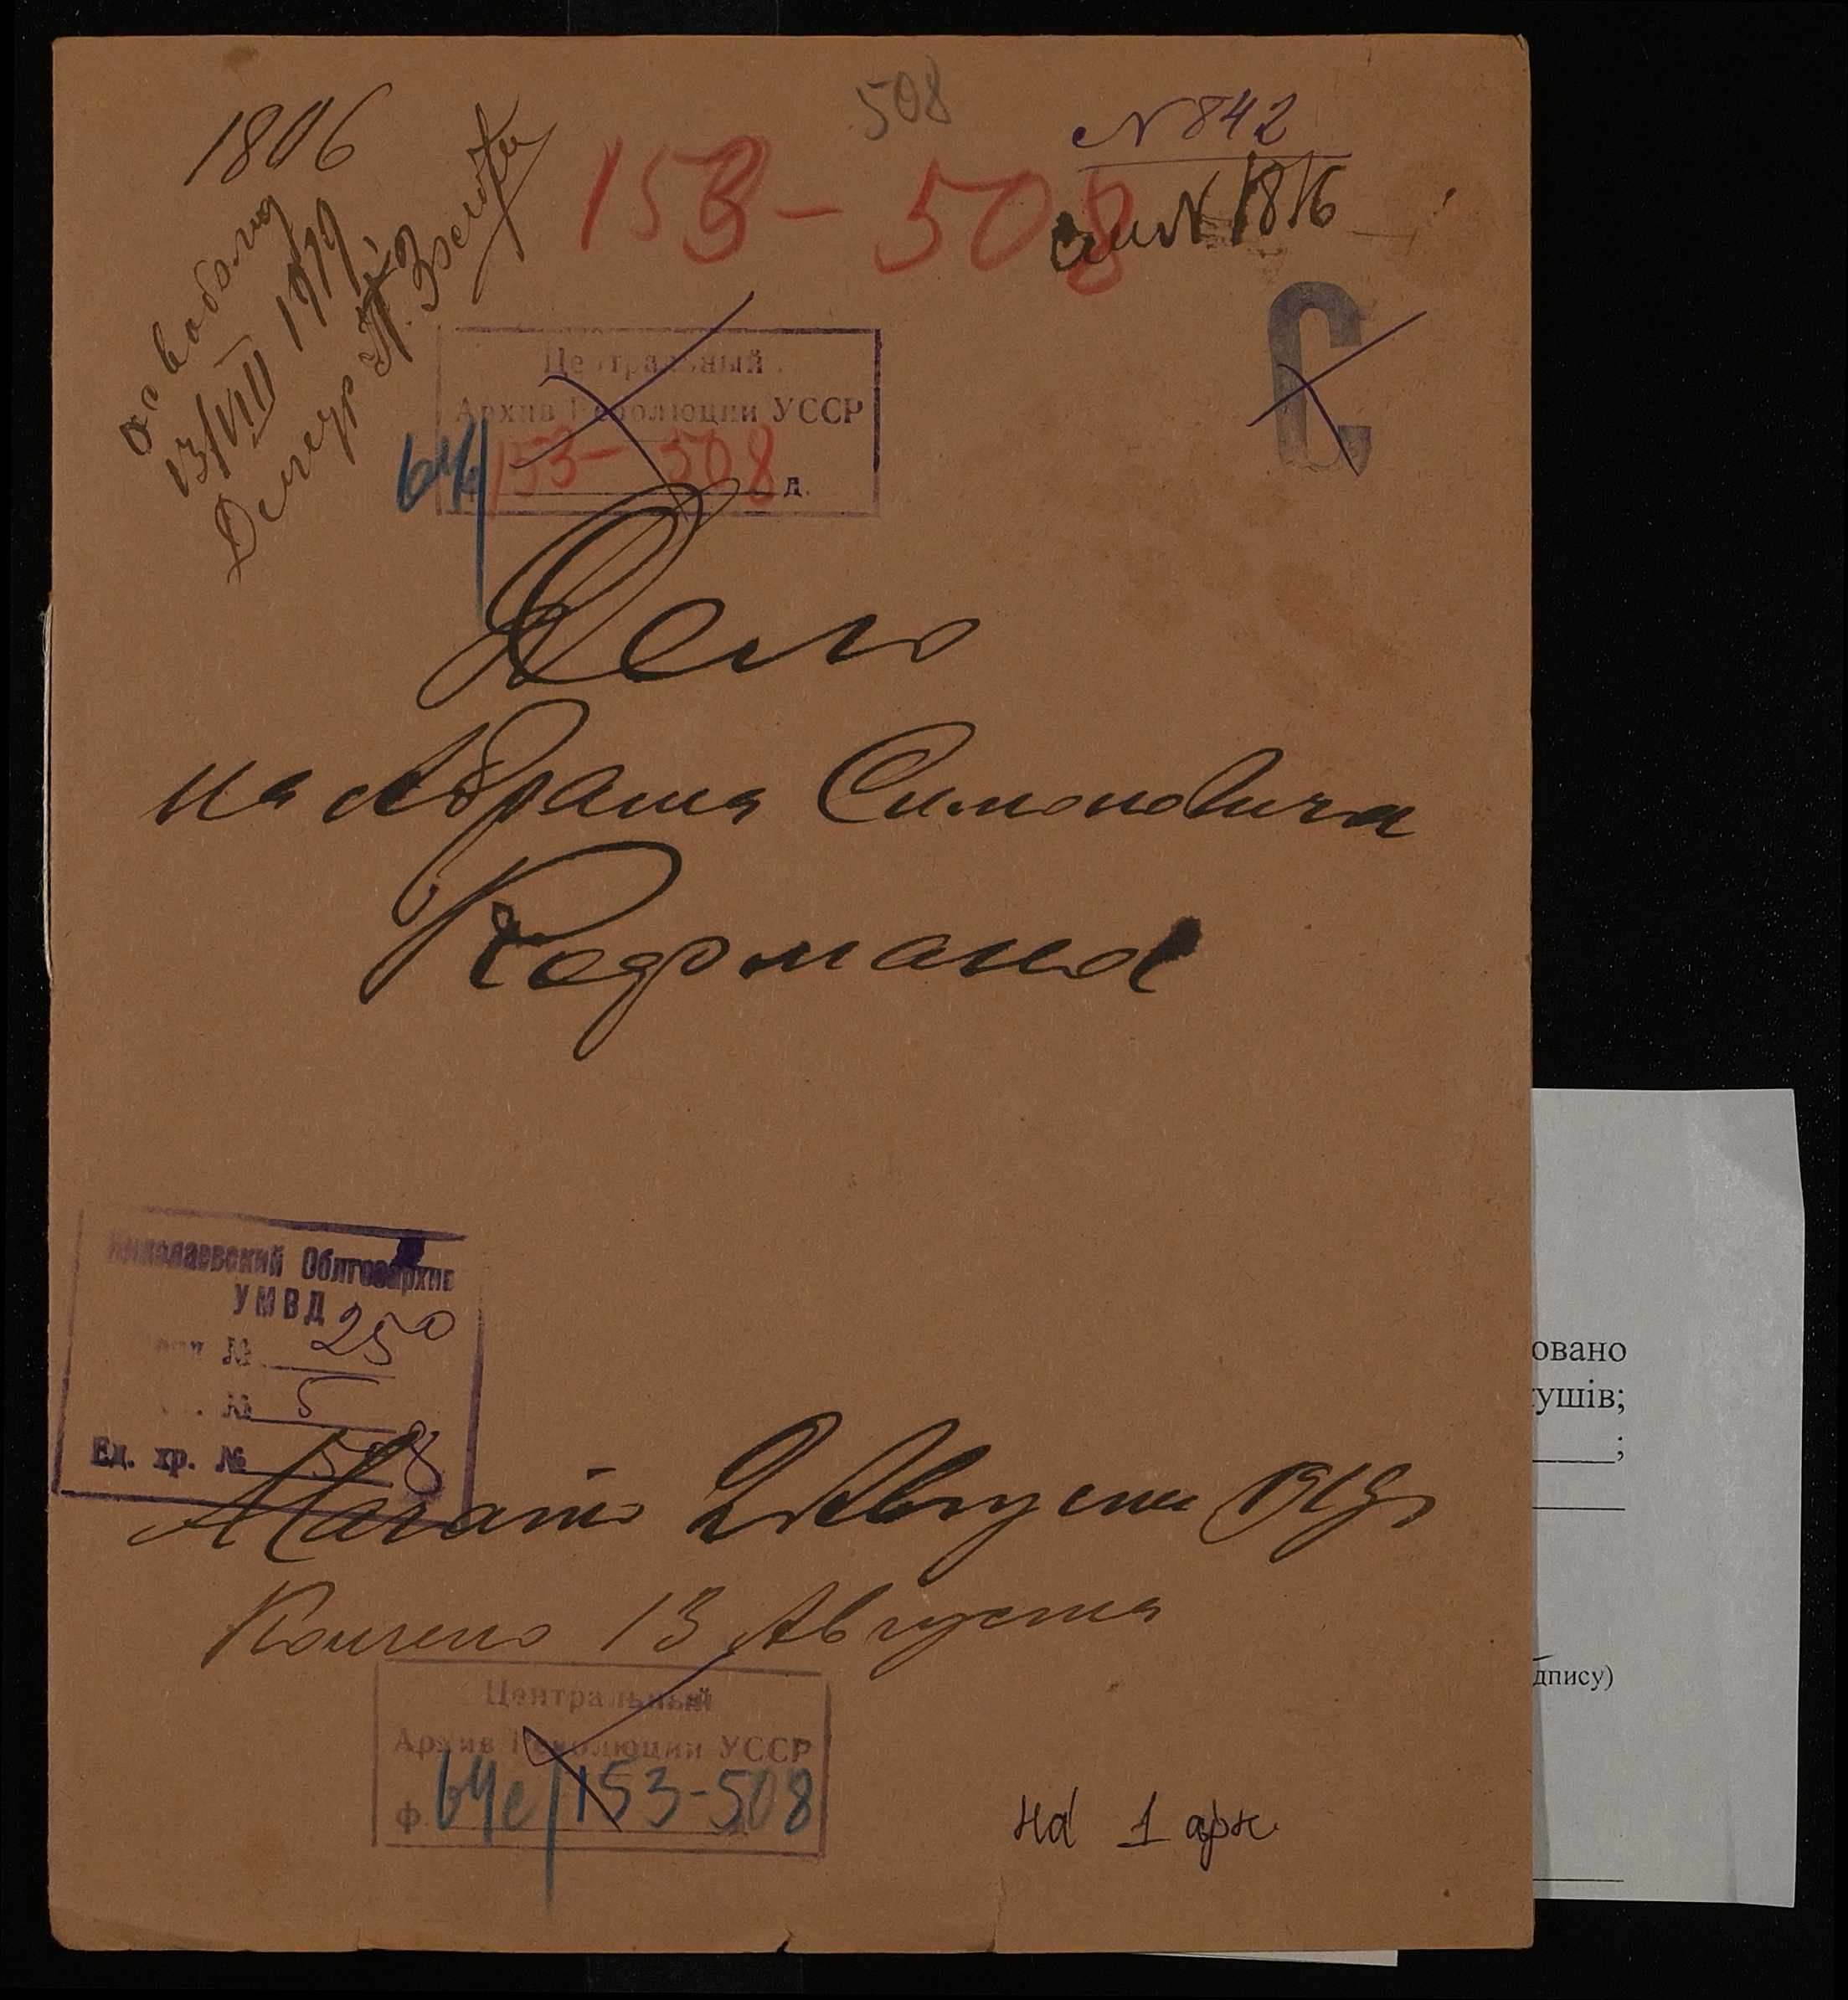 508
N 842
1806
153 - 508
N 1816
С
освобожд
13/VIII 1919
Центральный
Архив Революции УССР
64/153 - 508 д.
Дело
на Абрама Симоновича
Кофмана
Николаевский Облгосархив
УМВД
№ 250
№ 5
Ед. хр. № 508
Начато 2 Августа 1919 г
Кончено 13 Августа
Центральный
Архив Революции УССР
ф 64с/153-508
на 1 арк.
овано
ушів;
;
дпису)